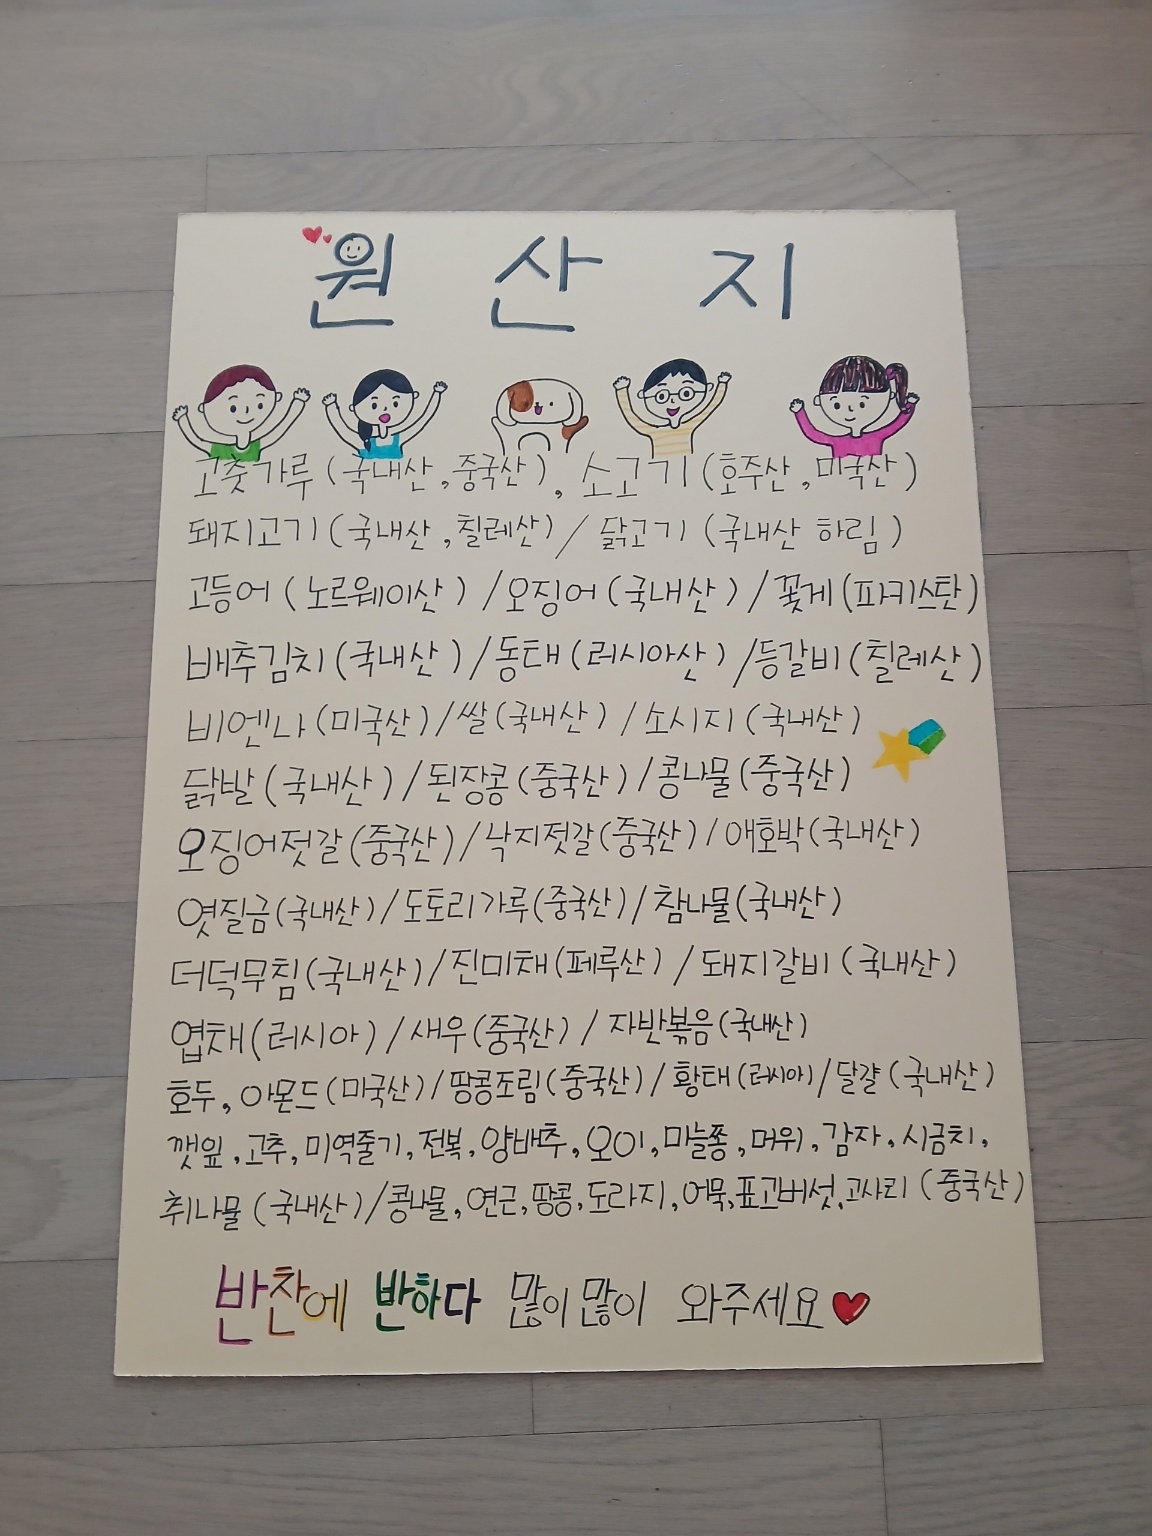 원 산 지
고춧가루(국내산,중국산), 소고기(호주산,미국산)
돼지고기(국내산,칠레산)/ 닭고기 (국내산 하림)
고등어(노르웨이산)/오징어(국내산)/꽃게(파키스탄)
배추김치(국내산)/동태(러시아산)/등갈비(칠레산)
비엔나(미국산)/쌀(국내산)/소시지(국내산)
닭발(국내산)/된장콩(중국산)/콩나물(중국산)
오징어젓갈(중국산)/낙지젓갈(중국산)/애호박(국내산)
엿질금(국내산)/도토리가루(중국산)/참나물(국내산)
더덕무침(국내산)/진미채(페루산)/돼지갈비(국내산)
엽채(러시아)/새우(중국산)/자반볶음(국내산)
호두, 아몬드(미국산)/땅콩조림(중국산)/황태(러시아)/달걀(국내산)
깻잎,고추,미역줄기,전복,양배추,오이,마늘쫑,머위,감자,시금치,
취나물(국내산)/콩나물,연근,땅콩,도라지,어묵,표고버섯,고사리(중국산)
반찬에 반하다 많이많이 와주세요